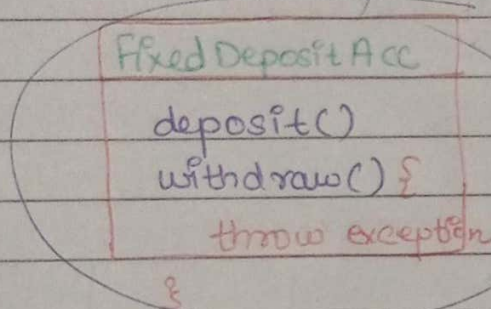 FixedDepositAcc
deposit()
withdraw() {
throw exception
}